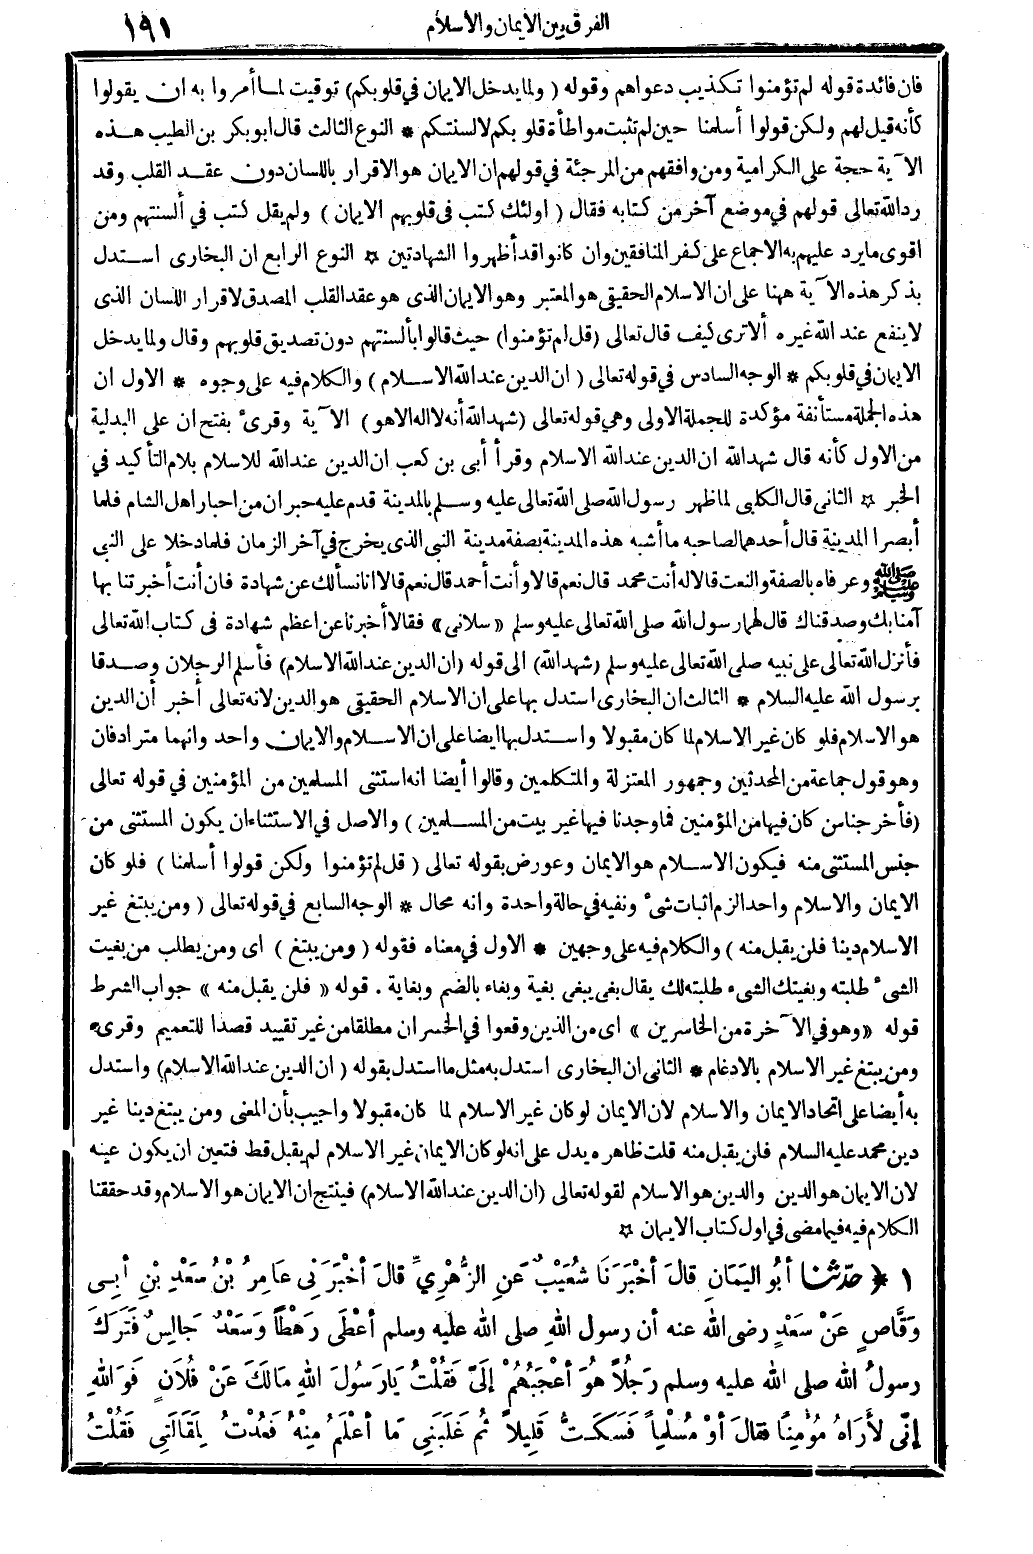 الفرق بين الايمان والاسلام
١٩١
فان فائدة قوله لم تؤمنوا تكذيب دعواهم وقوله ( ولما يدخل الايمان في قلوبكم ) توقيت لما أمروا به ان يقولوا
كأنه قيل لهم ولكن قولوا أسلمنا حين لم تثبت مواطأة قلوبكم لالسنتكم * النوع الثالث قال ابو بكر بن الطيب هذه
الآية حجة على الكرامية ومن وافقهم من المرجئة في قولهم ان الايمان هو الاقرار باللسان دون عقد القلب وقد
رد الله تعالى قولهم في موضع آخر من كتابه فقال ( اولئك كتب في قلوبهم الايمان ) ولم يقل كتب في ألسنتهم ومن
اقوى ما يرد عليهم به الاجماع على كفر المنافقين وان كانوا قد أظهروا الشهادتين ☆ النوع الرابع ان البخارى استدل
بذكر هذه الآية ههنا على ان الاسلام الحقيقي هو المعتبر وهو الايمان الذى هو عقد القلب المصدق لاقرار اللسان الذى
لا ينفع عند الله غيره ألا ترى كيف قال تعالى (قل لم تؤمنوا) حيث قالوا بألسنتهم دون تصديق قلوبهم وقال ولما يدخل
الايمان في قلوبكم * الوجه السادس في قوله تعالى ( ان الدين عند الله الاسلام ) والكلام فيه على وجوه * الاول ان
هذه الجملة مستأنفة مؤكدة للجملة الاولى وهي قوله تعالى (شهد الله أنه لا اله الا هو) الآية وقرىء بفتح ان على البدلية
من الاول كأنه قال شهد الله ان الدين عند الله الاسلام وقرأ أبى بن كعب ان الدين عند الله للاسلام بلام التأكيد في
الخبر ☆ الثانى قال الكلبى لما ظهر رسول الله صلى الله تعالى عليه وسلم بالمدينة قدم عليه حبران من احبار اهل الشام فلما
أبصرا المدينة قال أحدهما لصاحبه ما أشبه هذه المدينة بصفة مدينة النبى الذى يخرج في آخر الزمان فلما دخلا على النبى
ﷺ وعرفاه بالصفة والنعت قالا له أنت محمد قال نعم قالا وأنت أحمد قال نعم قالا انا نسألك عن شهادة فان أنت أخبرتنا بها
آمنا بك وصدقناك قال لهما رسول الله صلى الله تعالى عليه وسلم «سلانى» فقالا أخبرنا عن اعظم شهادة في كتاب الله تعالى
فأنزل الله تعالى على نبيه صلى الله تعالى عليه وسلم (شهد الله) الى قوله (ان الدين عند الله الاسلام) فأسلم الرجلان وصدقا
برسول الله عليه السلام * الثالث ان البخارى استدل بها على ان الاسلام الحقيقي هو الدين لانه تعالى أخبر أن الدين
هو الاسلام فلو كان غير الاسلام لما كان مقبولا واستدل بها ايضا على ان الاسلام والايمان واحد وانهما مترادفان
وهو قول جماعة من المحدثين وجمهور المعتزلة والمتكلمين وقالوا أيضا انه استثنى المسلمين من المؤمنين في قوله تعالى
(فأخرجنا من كان فيها من المؤمنين فما وجدنا فيها غير بيت من المسلمين ) والاصل في الاستثناء ان يكون المستثنى من
جنس المستثنى منه فيكون الاسلام هو الايمان وعورض بقوله تعالى ( قل لم تؤمنوا ولكن قولوا أسلمنا ) فلو كان
الايمان والاسلام واحد الزم اثبات شىء ونفيه في حالة واحدة وانه محال * الوجه السابع في قوله تعالى ( ومن يبتغ غير
الاسلام دينا فلن يقبل منه ) والكلام فيه على وجهين * الاول في معناه فقوله ( ومن يبتغ ) اى ومن يطلب من بغيت
الشىء طلبته وبغيتك الشىء طلبته لك يقال بغى يبغى بغية وبغاء بالضم وبغاية . قوله « فلن يقبل منه » جواب الشرط
قوله «وهو في الآخرة من الخاسرين » اى من الذين وقعوا في الخسران مطلقا من غير تقييد قصدا للتعميم وقرىء
ومن يبتغ غير الاسلام بالادغام * الثانى ان البخارى استدل به مثل ما استدل بقوله ( ان الدين عند الله الاسلام) واستدل
به أيضا على اتحاد الايمان والاسلام لان الايمان لو كان غير الاسلام لما كان مقبولا واجيب بأن المعنى ومن يبتغ دينا غير
دين محمد عليه السلام فلن يقبل منه قلت ظاهره يدل على انه لو كان الايمان غير الاسلام لم يقبل قط فتعين ان يكون عينه
لان الايمان هو الدين والدين هو الاسلام لقوله تعالى (ان الدين عند الله الاسلام) فينتج ان الايمان هو الاسلام وقد حققنا
الكلام فيه فيما مضى في اول كتاب الايمان ☆
١ ﴿ حدّثنا أبُو اليَمَانِ قالَ أخْبَرَنَا شُعَيْبٌ عَنِ الزُّهْرِيِّ قالَ أخْبَرَنِى عَامِرُ بْنُ سَعْدِ بْنِ أبِى
وَقَّاصٍ عَنْ سَعْدٍ رضى الله عنه أن رسول اللهِ صلى الله عليه وسلم أعْطَى رَهْطًا وَسَعْدٌ جَالِسٌ فَتَرَكَ
رسولُ الله صلى الله عليه وسلم رَجُلًا هُوَ أعْجَبُهُمْ إلَىَّ فَقُلْتُ يَارَسُولَ اللهِ مَالَكَ عَنْ فُلاَنٍ فَوَاللهِ
إنِّى لأَرَاهُ مُؤْمِنًا فقالَ أوْ مُسْلِماً فَسَكَتُّ قَلِيلاً ثُم غَلَبَنِى مَا أعْلَمُ مِنْهُ فَعُدْتُ لِمَقَالَتِى فَقُلْتُ